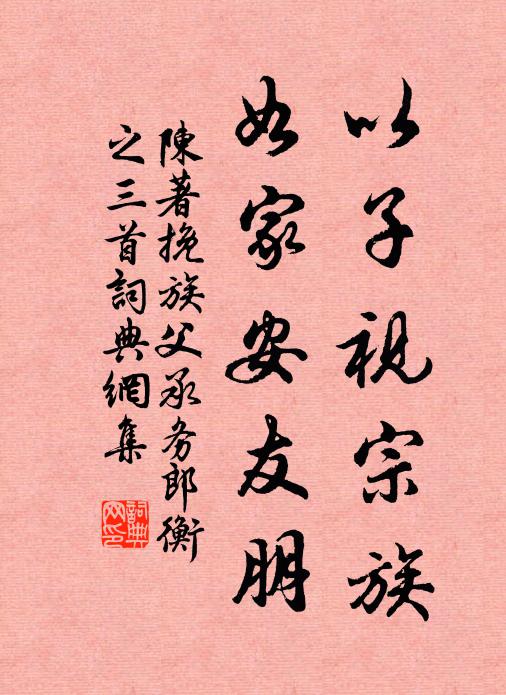 以子视宗族
如家安友朋
陳著挽族父承务郎衡
之三首詞典網集
詞典
网印